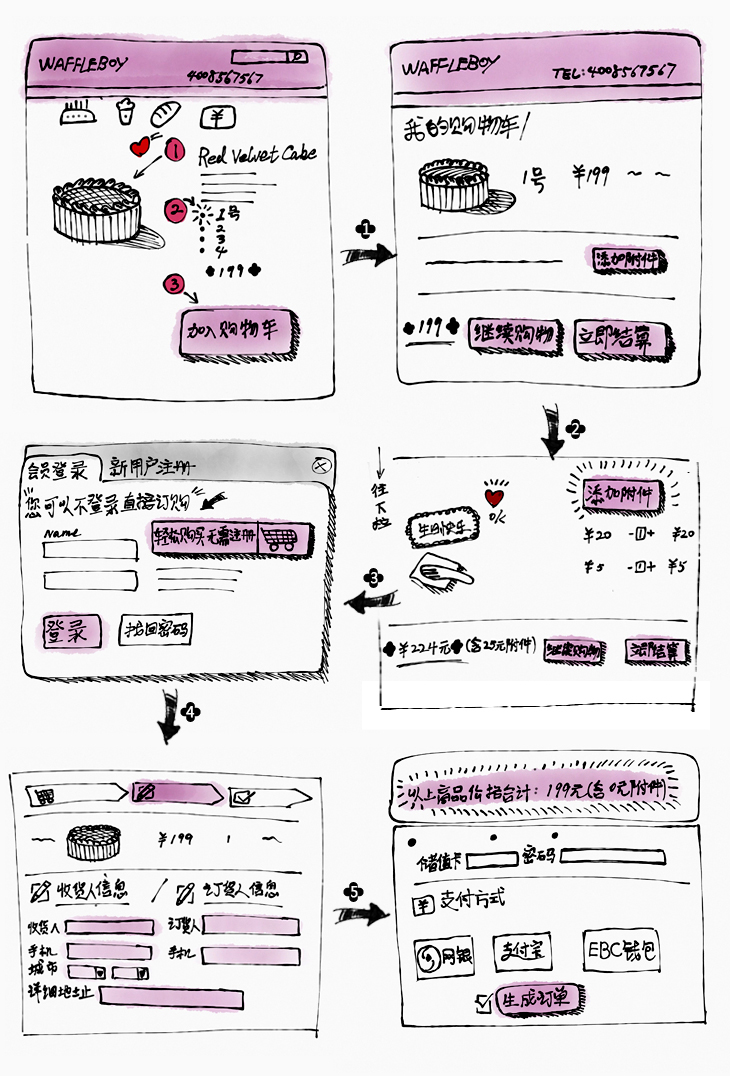 WAFFLEBOY
4008567567
¥
1
Red Velvet Cake
2
1号
2
3
4
199
3
加入购物车
1
WAFFLEBOY
TEL:4008567567
我的购物车/
1号 ¥199 ~ ~
添加附件
199 继续购物 立即结算
2
往下拉
生日快乐
OK
添加附件
¥20 -1+ ¥20
¥5 -1+ ¥5
¥224元(含25元附件) 继续购物 立即结算
3
会员登录 新用户注册
您可以不登录直接订购
Name
轻松购买 无需注册
登录 找回密码
4
¥199 1 ~
收货人信息 / 订货人信息
收货人 订货人
手机 手机
城市
详细地址
5
以上商品价格合计: 199元(含0元附件)
储值卡 密码
¥ 支付方式
网银 支付宝 EBC钱包
生成订单